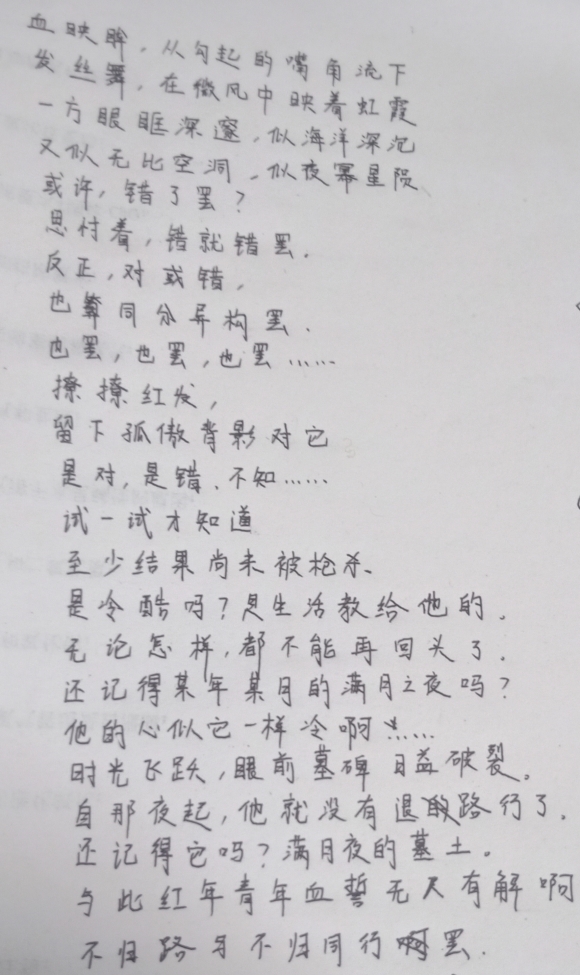 血映眸，从勾起的嘴角流下
发丝舞，在微风中映着虹霞
一方眼眶深邃，似海洋深沉
又似无比空洞，似夜幂星陨
或许，错了罢？
思忖着，错就错罢．
反正，对或错，
也算同分异构罢．
也罢，也罢，也罢……
撩撩红发，
留下孤傲背影对它
是对，是错．不知……
试一试才知道
至少结果尚未被枪杀、
是冷酷吗？是生活教给他的．
无论怎样，都不能再回头了．
还记得某年某月的满月之夜吗？
他的心似它一样冷啊……
时光飞跃，眼前墓碑日益破裂。
自那夜起，他就没有退路行了．
还记得它吗？满月夜的墓土。
与此红年青年血誓无人有解啊
不归路与不归同行啊罢．